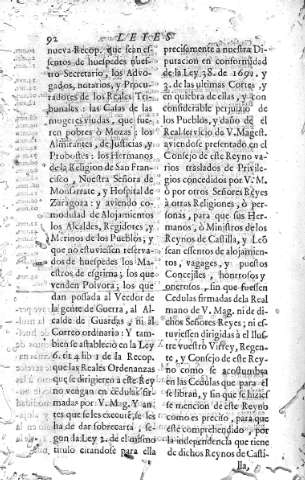 92 LEYES
nueva Recop. que sean es-
sentos de huespedes nues-
tro Secretario, los Advo-
gados, notarios, y Procu-
radores de los Reales Tri-
bunales: las Casas de las
mugeres viudas, que fue-
ren pobres ò Mozas: los
Almirantes, de Justicias, y
Probostes: los Hermanos
de la Religion de San Fran-
cisco, Nuestra Señora de
Montarrate, y Hospital de
Zaragoza: y aviendo co-
modidad de Alojamientos
los Alcaldes, Regidores, y
Merinos de los Pueblos, y
que no estuviessen reserva-
dos de huespedes los Ma-
estros de esgrima; los que
venden Polvora; los que
dan possada al Veedor de
la gente de Guerra, al Al-
calde de Guardas, ni al
Correo ordinario: Y tam-
bien se estableciò en la Ley
6. tit 4 lib 1 de la Recop.
que las Reales Ordenanzas
que se dirigieren à este Rey
no vengan en cedulas fir-
madas por V. Mag. Y an-
tes que se les execute, se les
ha de dar sobrecarta, se-
gun la Ley 2. de el mismo
titulo citandose para ella
precisamente à nuestra Di-
putacion en conformidad
de la Ley 38. de 1691. y
3. de las ultimas Cortes, y
en quiebra de ellas, y con
considerable perjuizio de
los Pueblos, y daño de el
Real servicio de V. Magest.
aviendose presentado en el
Consejo de este Reyno va-
rios traslados de Privile-
gios concedidos por V. M.
ò por otros Señores Reyes
à otras Religiones, ò per-
sonas, para que sus Her-
manos, ò Ministros de los
Reynos de Castilla, y Leò
sean essentos de alojamien-
tos, vagages, y puestos
Concejiles, honrosos y
onerosos, sin que fuessen
Cedulas firmadas de la Real
mano de V. Mag. ni de di-
chos Señores Reyes; ni es-
tuviessen dirigidas à el Ilus-
tre vuestro Virrey, Regen-
te, y Consejo de este Rey-
no como se acostumbra
en las Cedulas que para èl
se libran, y sin que se hiziesse
se mencion de este Reyno
como es preciso, para que
este comprehendido, por
la independencia que tiene
de dichos Reynos de Casti-
lla,